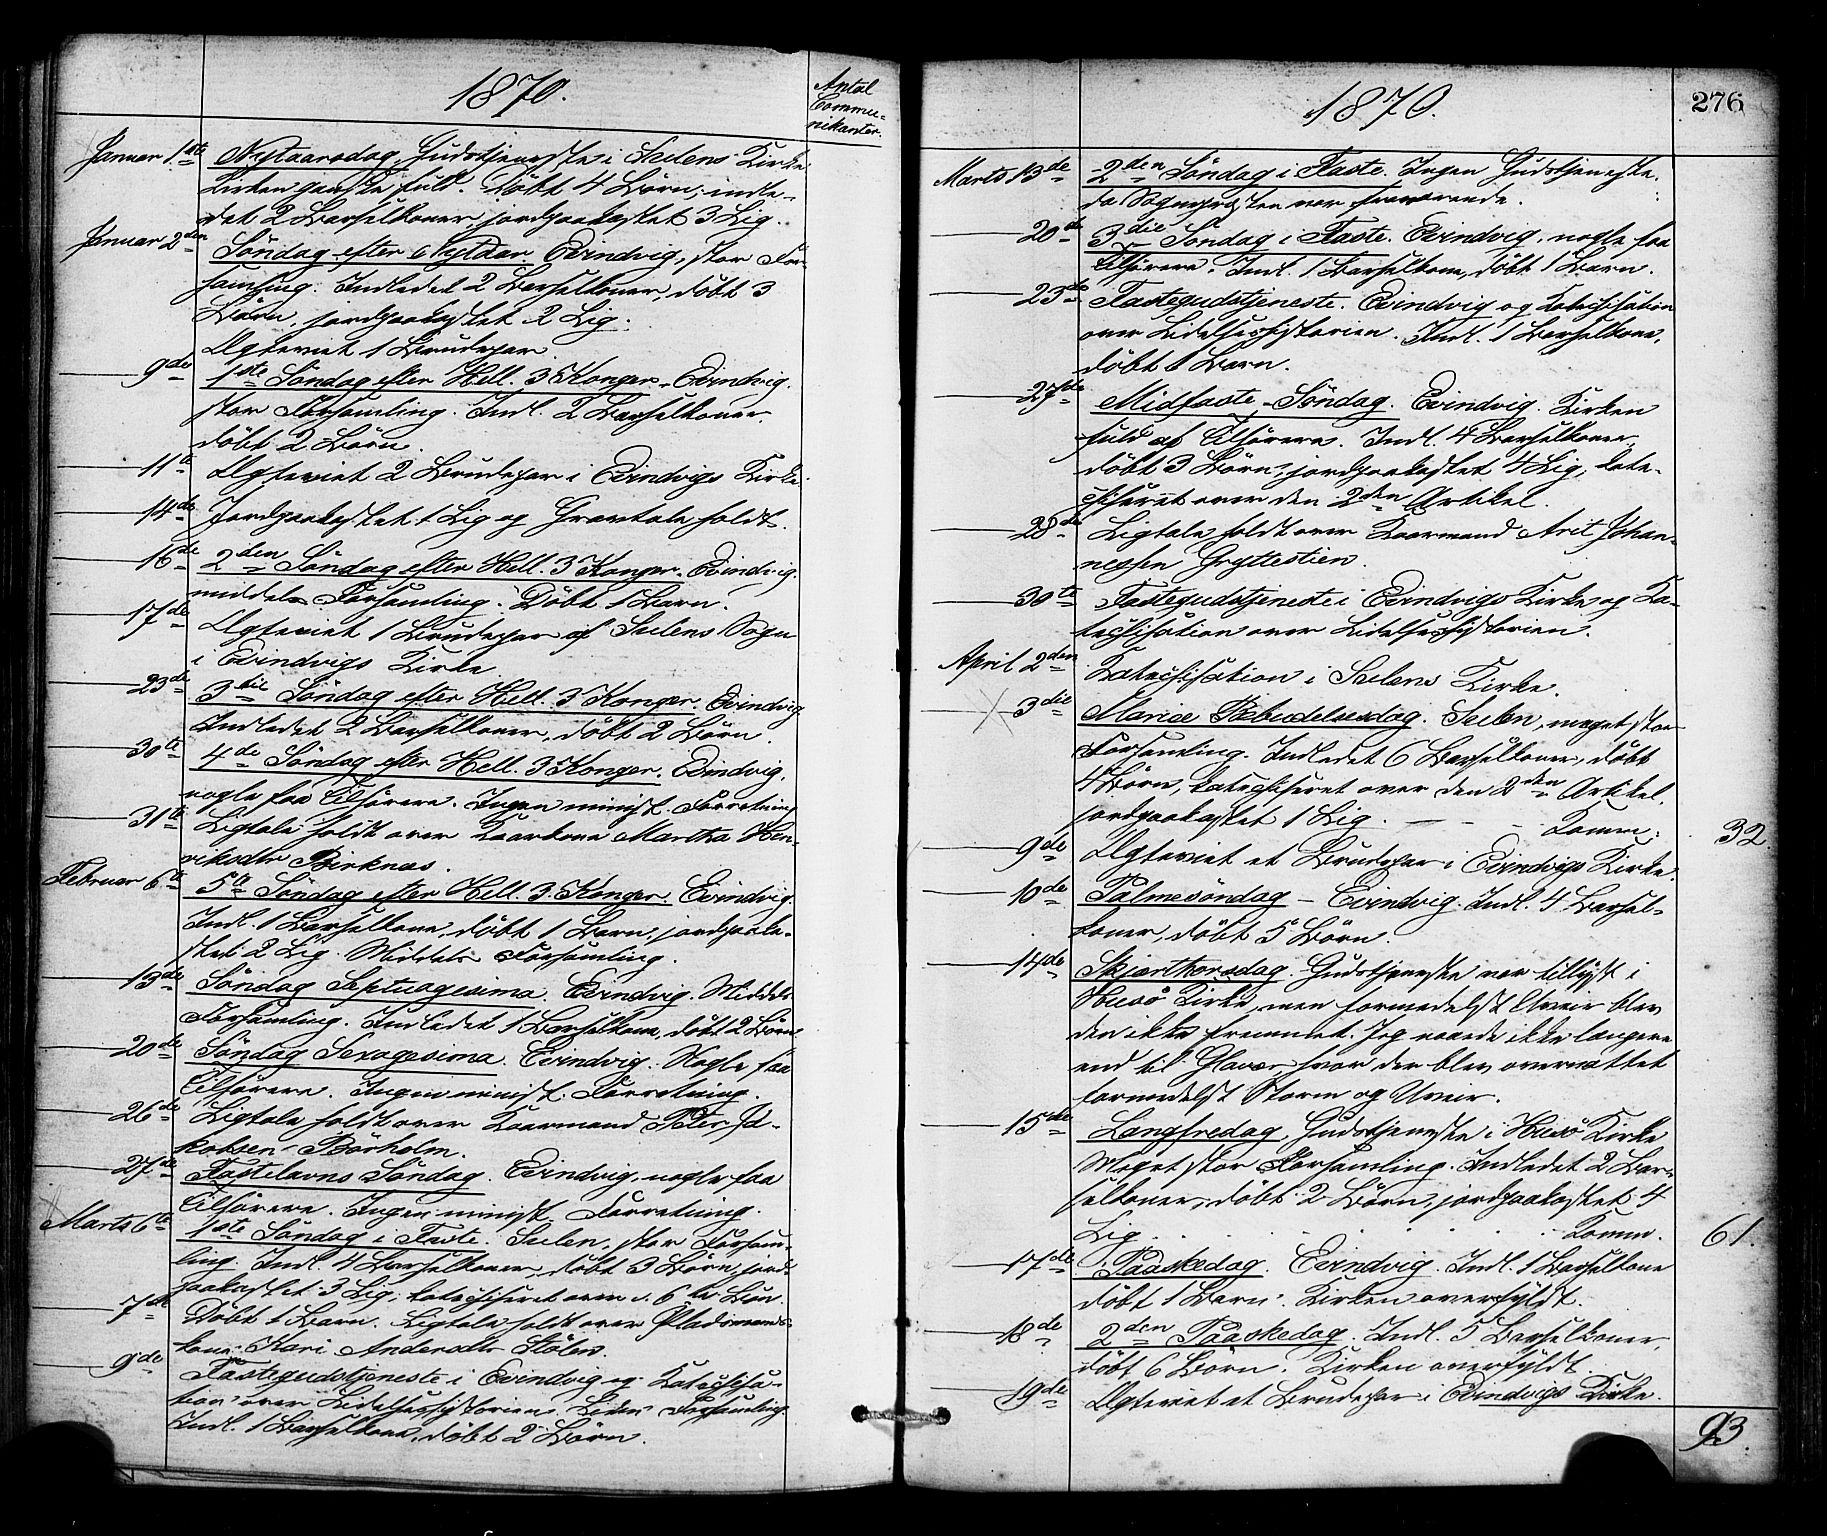 1870.
Antal
Commu-
nikanter.
Januar 1ste Nytaarsdag. Gudstjeneste i Sulens Kirke
Kirken ganske fuld. Döbt 4 Börn, indle-
det 2 Barselkoner, jordpaakastet 3 Lig.
Januar 2den Söndag efter Nytaar. Evindvig, stor For-
samling. Indledet 2 Barselkoner, döbt 3
Börn, jordpaakastet 2 Lig.
Ægteviet 1 Brudepar.
9de 1ste Söndag efter Hell. 3 Konger. Evindvig.
stor Forsamling. Indl. 2 Barselkoner.
döbt 2 Börn.
11te Ægteviet 2 Brudepar i Evindvigs Kirke.
14de Jordpaakastet 1 Lig og Gravtale holdt.
16de 2den Söndag efter Hell. 3 Konger. Evindvig.
middels Forsamling. Döbt 1 Barn.
17de Ægteviet 1 Brudepar af Sulens Sogn
i Evindvigs Kirke
23de 3die Söndag efter Hell. 3 Konger. Evindvig
Indledet 2 Barselkoner, döbt 2 Börn.
30te 4de Söndag efter Hell. 3 Konger. Evindvig,
nogle faa Tilhörere. Ingen minist. Forretning
31te Ligtale holdt over Kaarkone Martha Hen-
riksdtr Birknæs.
Februar 6te 5te Söndag efter Hell. 3 Konger. Evindvig.
Indl. 1 Barselkone, döbt 1 Barn, jordpaaka-
stet 2 Lig. Middels Forsamling.
13de Söndag Septuagesima. Evindvig. Middels
Forsamling. Indledet 1 Barselkone, döbt 2 Börn.
20de Söndag Sexagesima. Evindvig. Nogle faa
Tilhörere. Ingen minist. Forretning.
26de Ligtale holdt over Kaarmand Peter Ja-
kobsen Börholm.
27de Fastelavns Söndag. Evindvig, nogle faa
Tilhörere. Ingen minist. Forretning.
Marts 6te 1ste Söndag i Faste. Sulen, stor Forsam-
ling. Indl. 4 Barselkoner, döbt 3 Börn, jord-
paakastet 3 Lig, katechiseret over d. 6te Bön.
7de Döbt 1 Barn. Ligtale holdt over Pladsmands-
kone Kari Andersdtr Stölen.
9de Fastegudstjeneste i Evindvig og Katechisa-
tion over Lidelseshistorien. Liden Forsamling.
Indl. 1 Barselkone, döbt 2 Börn.
1870.
276
Marts 13de 2den Söndag i Faste. Ingen Gudstjeneste,
da Sognepresten var fraværende.
20de 3die Söndag i Faste. Evindvig, nogle faa
Tilhörere. Indl. 1 Barselkone, döbt 1 Barn.
23de Fastegudstjeneste. Evindvig og Katechisation
over Lidelseshistorien. Indl. 1 Barselkone,
döbt 1 Barn.
27de Midfaste-Söndag. Evindvig. Kirken
fuld af Tilhörere. Indl. 4 Barselkoner,
döbt 3 Börn, jordpaakastet 4 Lig, kate-
chiseret over den 2den Artikel.
28de Ligtale holdt over Kaarmand Johan-
nessen Gryttestien.
30te Fastegudstjeneste i Evindvigs Kirke og Ka-
techisation over Lidelseshistorien.
April 2den Katechisation i Sulens Kirke.
3die Mariæ Bebudelsesdag. Sulen, meget stor
Forsamling. Indledet 6 Barselkoner, döbt
4 Börn, katechiseret over den 2den Artikel,
jordpaakastet 1 Lig. Komm. 32
9de Ægteviet et Brudepar i Evindvigs Kirke.
10de Palmesöndag - Evindvig. Indl. 4 Barsel-
koner, döbt 5 Börn.
14de Skjærthorsdag. Gudstjeneste var tillyst i
Husö Kirke, men formedelst Uveir blev
den ikke fremmet. Jeg naaede ikke længere
end til Glavær, hvor der blev overnattet
formedelst Storm og Uveir.
15de Langfredag. Gudstjeneste i Husö Kirke
Meget stor Forsamling. Indledet 2 Bar-
selkoner, döbt 2 Börn, jordpaakastet 4
Lig. Komm. 61.
17de Paaskedag. Evindvig. Indl. 1 Barselkone
döbt 1 Barn. Kirken overfyldt.
18de 2den Paaskedag. Indl. 5 Barselkoner,
döbt 6 Börn. Kirken overfyldt.
19de Ægteviet et Brudepar i Evindvigs Kirke.
93.